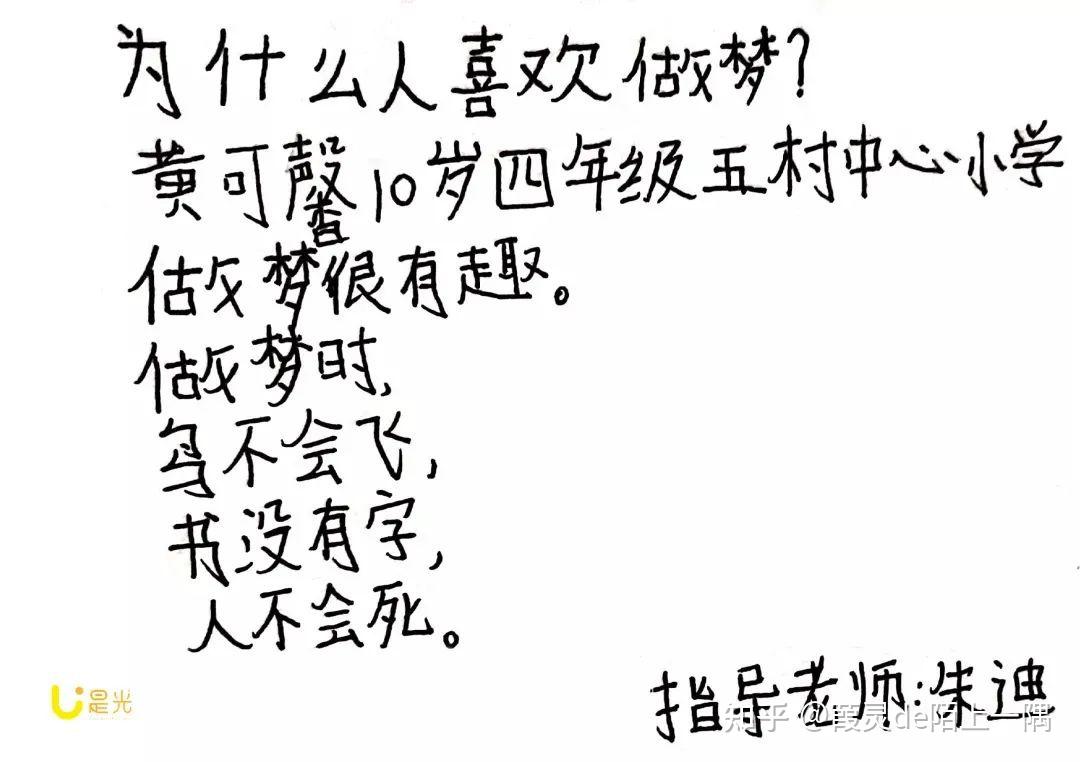 为什么人喜欢做梦?
黄可馨10岁四年级五村中心小学
做梦很有趣。
做梦时,
鸟不会飞,
书没有字,
人不会死。
是光
指导老师:朱迪
知乎 @霞灵de陌上一隅